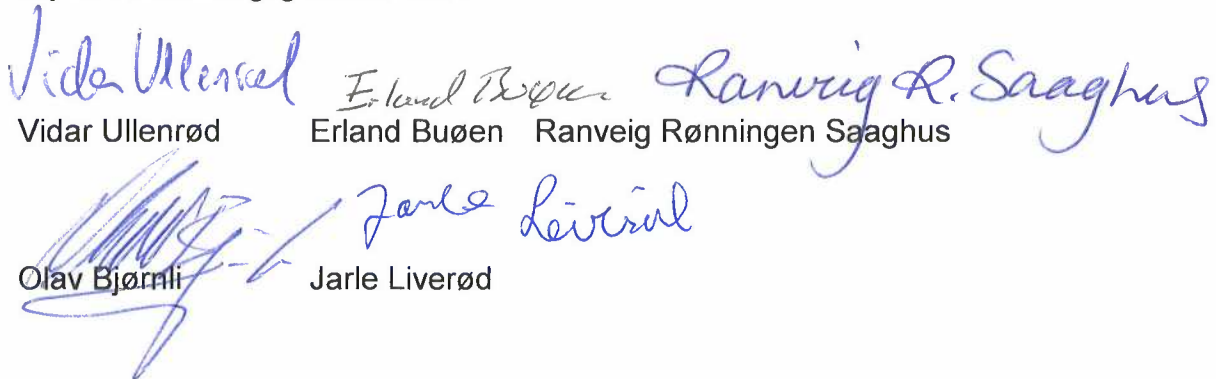 Vidar Ullerød Erland Buøen Ranveig R. Saaghus
Vidar Ullenrød Erland Buøen Ranveig Rønningen Saaghus
Jarle Liverød
Olav Bjørnli Jarle Liverød